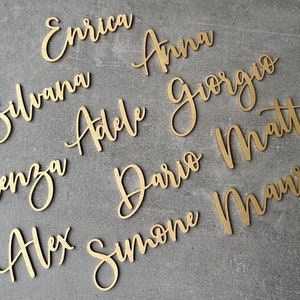 Enrica
Anna
Silvana
Adele
Giorgio
enza
Dario
Matt
Alex
Simone
Mau